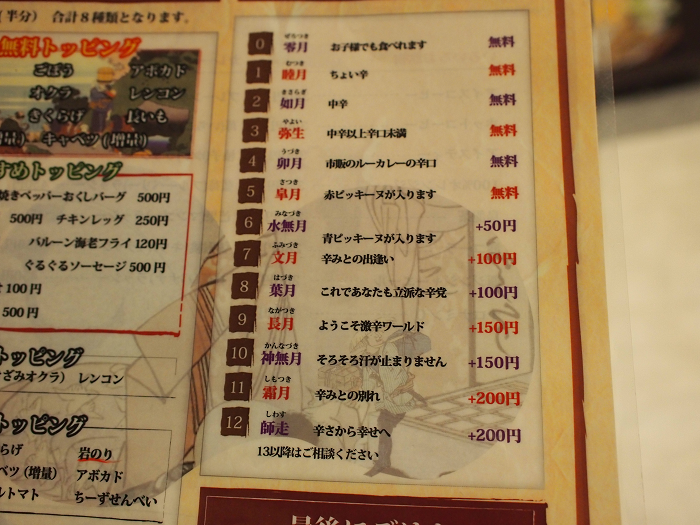 (半分) 合計8種類となります。
無料トッピング
ごぼう アボカド
オクラ レンコン
きくらげ 長いも
増量) キャベツ(増量)
すめトッピング
焼きペッパーおくしバーグ 500円
500円 チキンレッグ 250円
バルーン海老フライ 120円
ぐるぐるソーセージ 500円
100円
500円
トッピング
ざみオクラ) レンコン
トッピング
らげ 岩のり
ベツ(増量) アボカド
ルトマト ちーずせんべい
ぜろつき
0 零月 お子様でも食べれます 無料
むつき
1 睦月 ちょい辛 無料
きさらぎ
2 如月 中辛 無料
やよい
3 弥生 中辛以上辛口未満 無料
うづき
4 卯月 市販のルーカレーの辛口 無料
さつき
5 皐月 赤ピッキーヌが入ります 無料
みなづき
6 水無月 青ピッキーヌが入ります +50円
ふみづき
7 文月 辛みとの出逢い +100円
はづき
8 葉月 これであなたも立派な辛党 +100円
ながつき
9 長月 ようこそ激辛ワールド +150円
かんなづき
10 神無月 そろそろ汗が止まりません +150円
しもつき
11 霜月 辛みとの別れ +200円
しわす
12 師走 辛さから幸せへ +200円
13以降はご相談ください